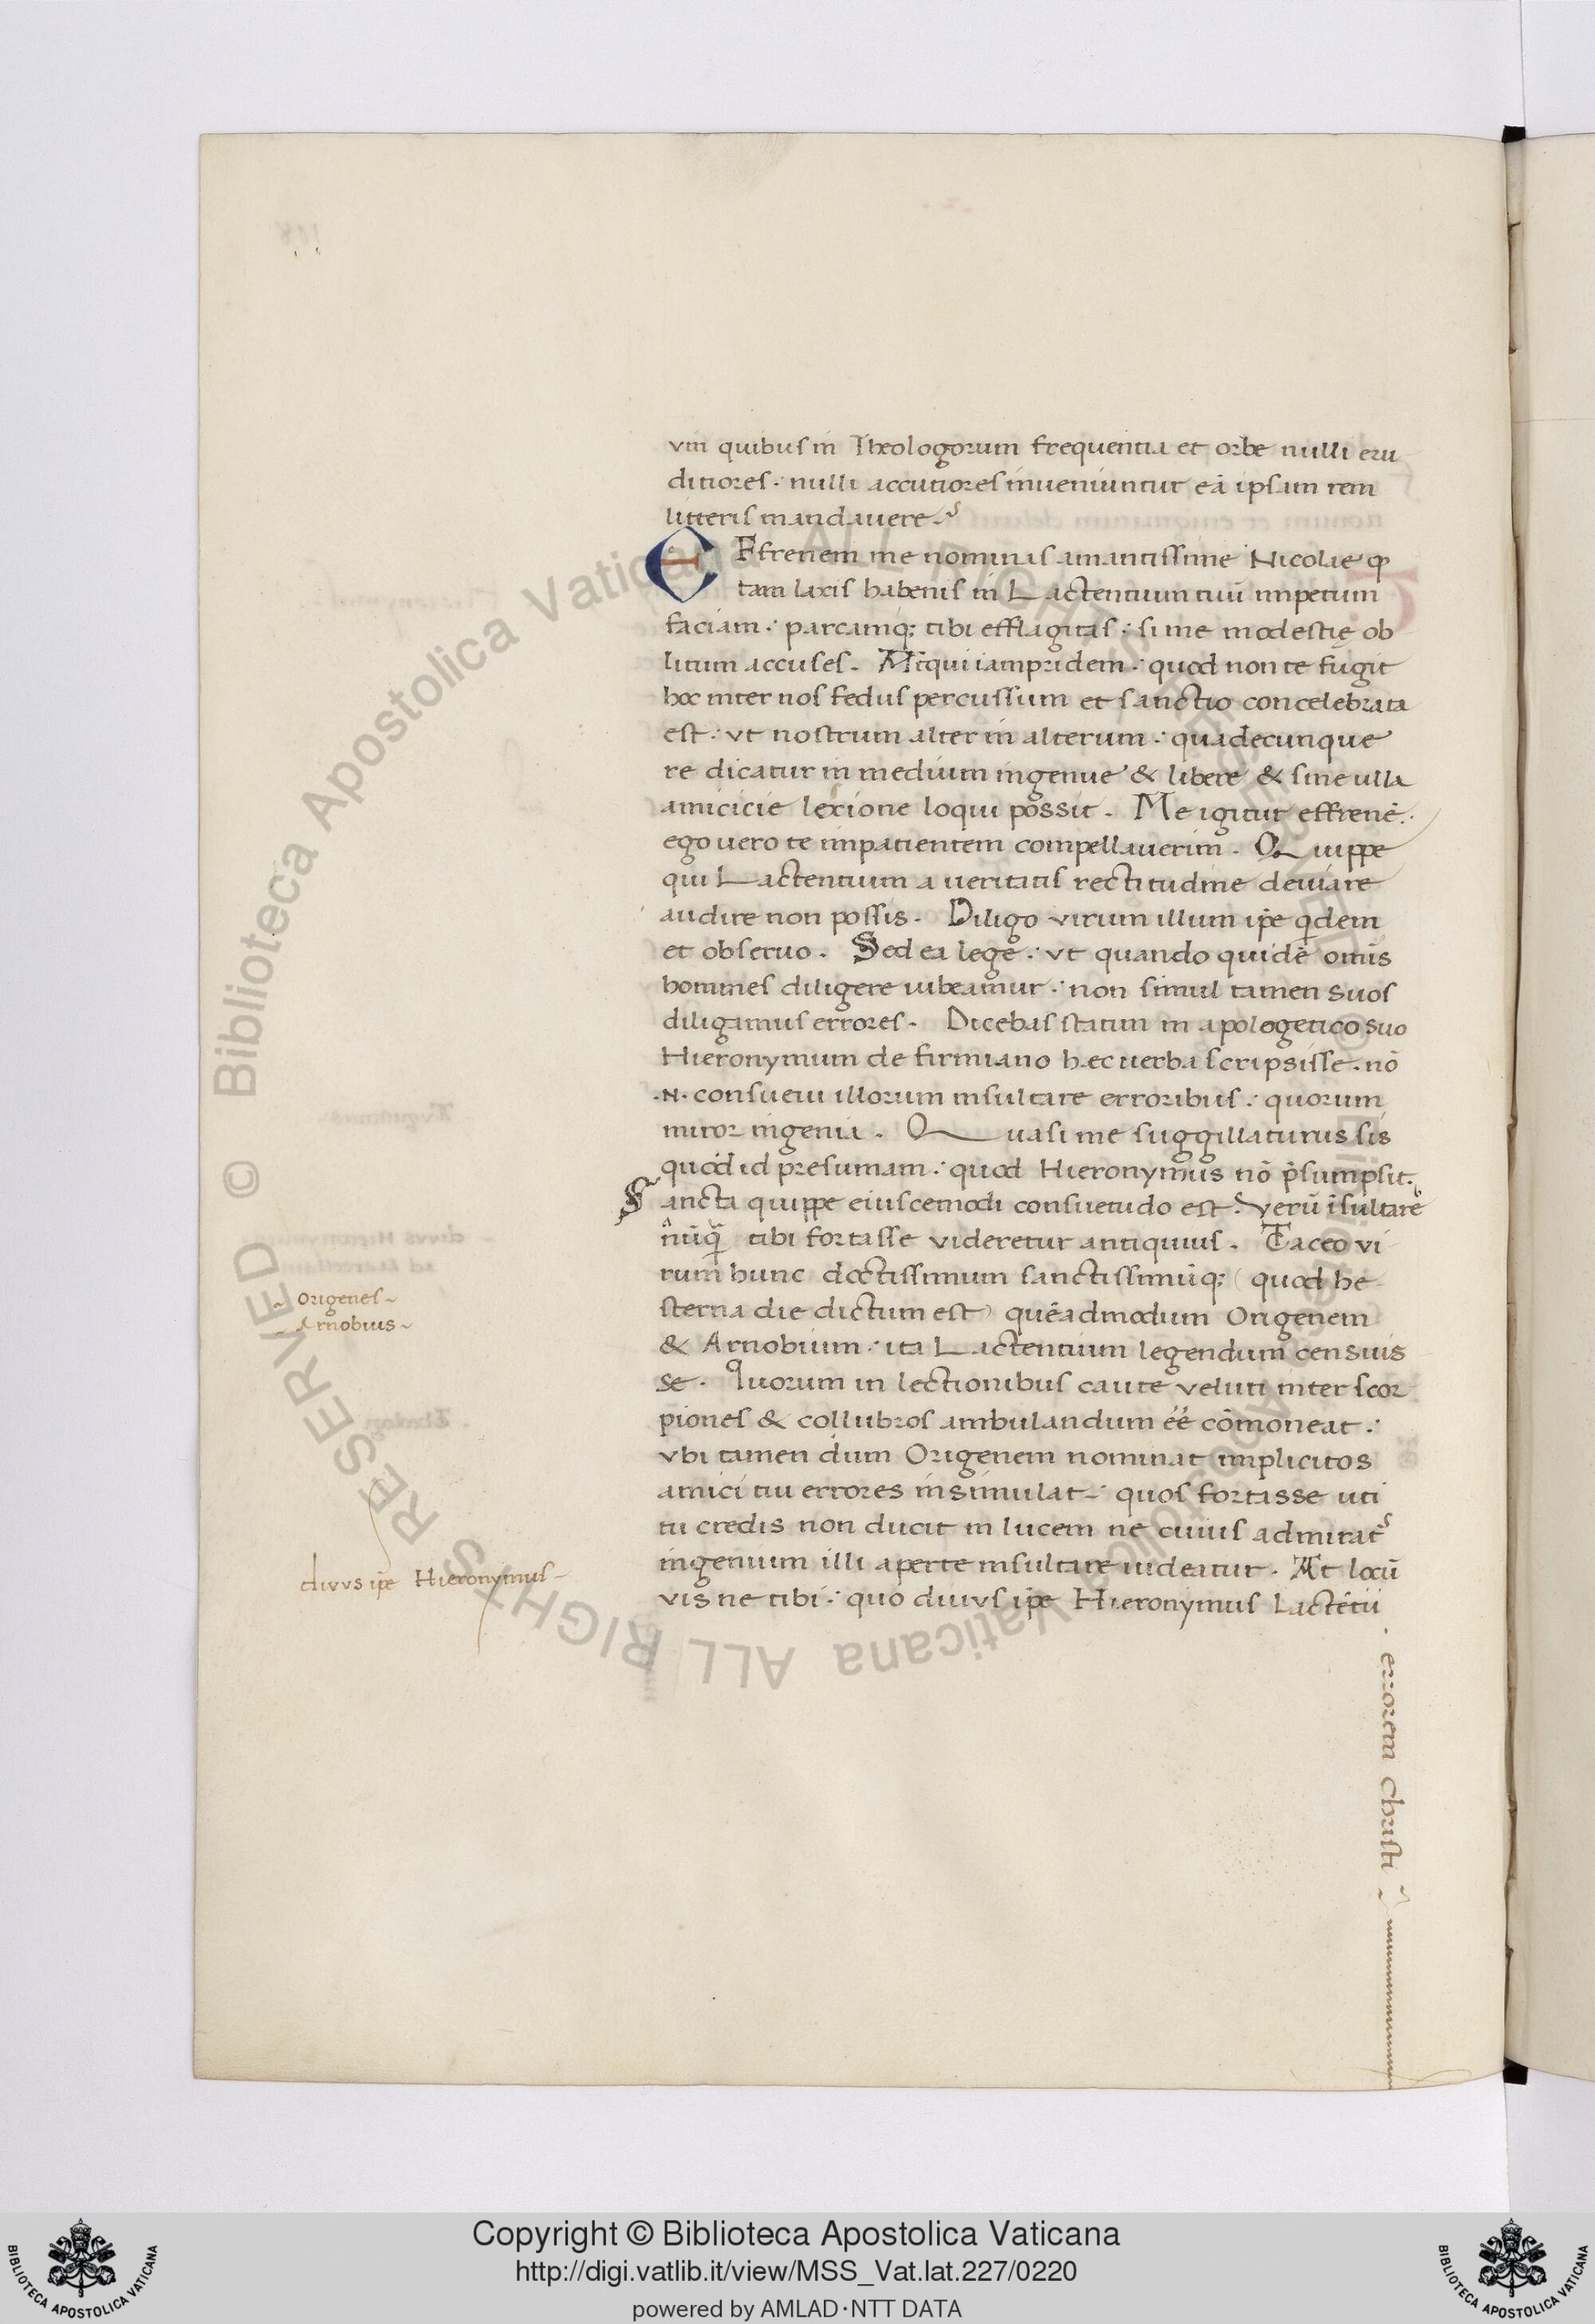 viri quibus in Theologorum frequentia et orbe nulli eru
ditiores . nulli accutiores inueniuntur eā ipsam rem
litteris mandauere .
EFfrenem me nominas amantissime Nicolae ꝙ
tam laxis habenis in Lactentium tuū impetum
faciam . parcamq; tibi efflagitas . si me modestię ob
litum accuses . Atqui iampridem . quod non te fugit
hoc inter nos fedus percussum et sanctio concelebrata
est . vt nostrum alter in alterum . quadecunque
re dicatur in medium ingenue & libere & sine ulla
amicicie lexione loqui possit . Me igitur effrenē .
ego uero te impatientem compellauerim . Quippe
qui Lactentium a ueritatis rectitudine deuiare
audire non possis . Diligo virum illum ip̄e qͥdem
et obseruo . Sed ea lege . vt quando quidē om̄is
homines diligere iubeamur . non simul tamen suos
diligamus errores . Dicebas statim in apologetico suo
Hieronymum de firmiano hec uerba scripsisse . nō
.N. consueui illorum insultare erroribus . quorum
miror ingenia . Quasi me suggillaturus sis
quod id presumam . quod Hieronymus nō p̄sumpsit .
Sancta quippe eiuscemodi consuetudo est . verū īsultare
tibi fortasse videretur antiquius . Taceo vi
rum hunc doctissimum sanctissimūq; ( quod he
sterna die dictum est ) quēadmodum Origenem
& Arnobium . ita Lactentium legendum censuis
se . Quorum in lectionibus caute veluti inter scor
piones & collubros ambulandum ēē cōmoneat .
vbi tamen dum Origenem nominat implicitos
amici tui errores insimulat . quos fortasse uti
tu credis non ducit in lucem ne cuius admirat
ingenium illi aperte insultare uideatur . At locū
vis ne tibi . quo diuus ip̄e Hieronymus Lactētii
. errorem Christi
Origenes
Arnobius
divvs ip̄e Hieronymus
© Biblioteca Apostolica Vaticana ALL RIGHTS RESERVED
© Biblioteca Apostolica Vaticana ALL RIGHTS RESERVED
Copyright © Biblioteca Apostolica Vaticana
http://digi.vatlib.it/view/MSS_Vat.lat.227/0220
powered by AMLAD·NTT DATA
BIBLIOTECA APOSTOLICA VATICANA
BIBLIOTECA APOSTOLICA VATICANA